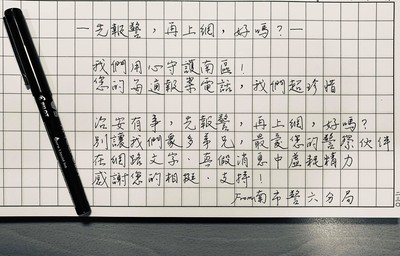 —先報警，再上網，好嗎？—
我們用心守護南區！
您的每通報案電話，我們超珍惜
治安有事，先報警，再上網，好嗎？
別讓我們眾多弟兄，最愛您的警察伙伴
在網路文字．真假消息中虛耗精力
感謝您的相挺．支持！
From南市警六分局